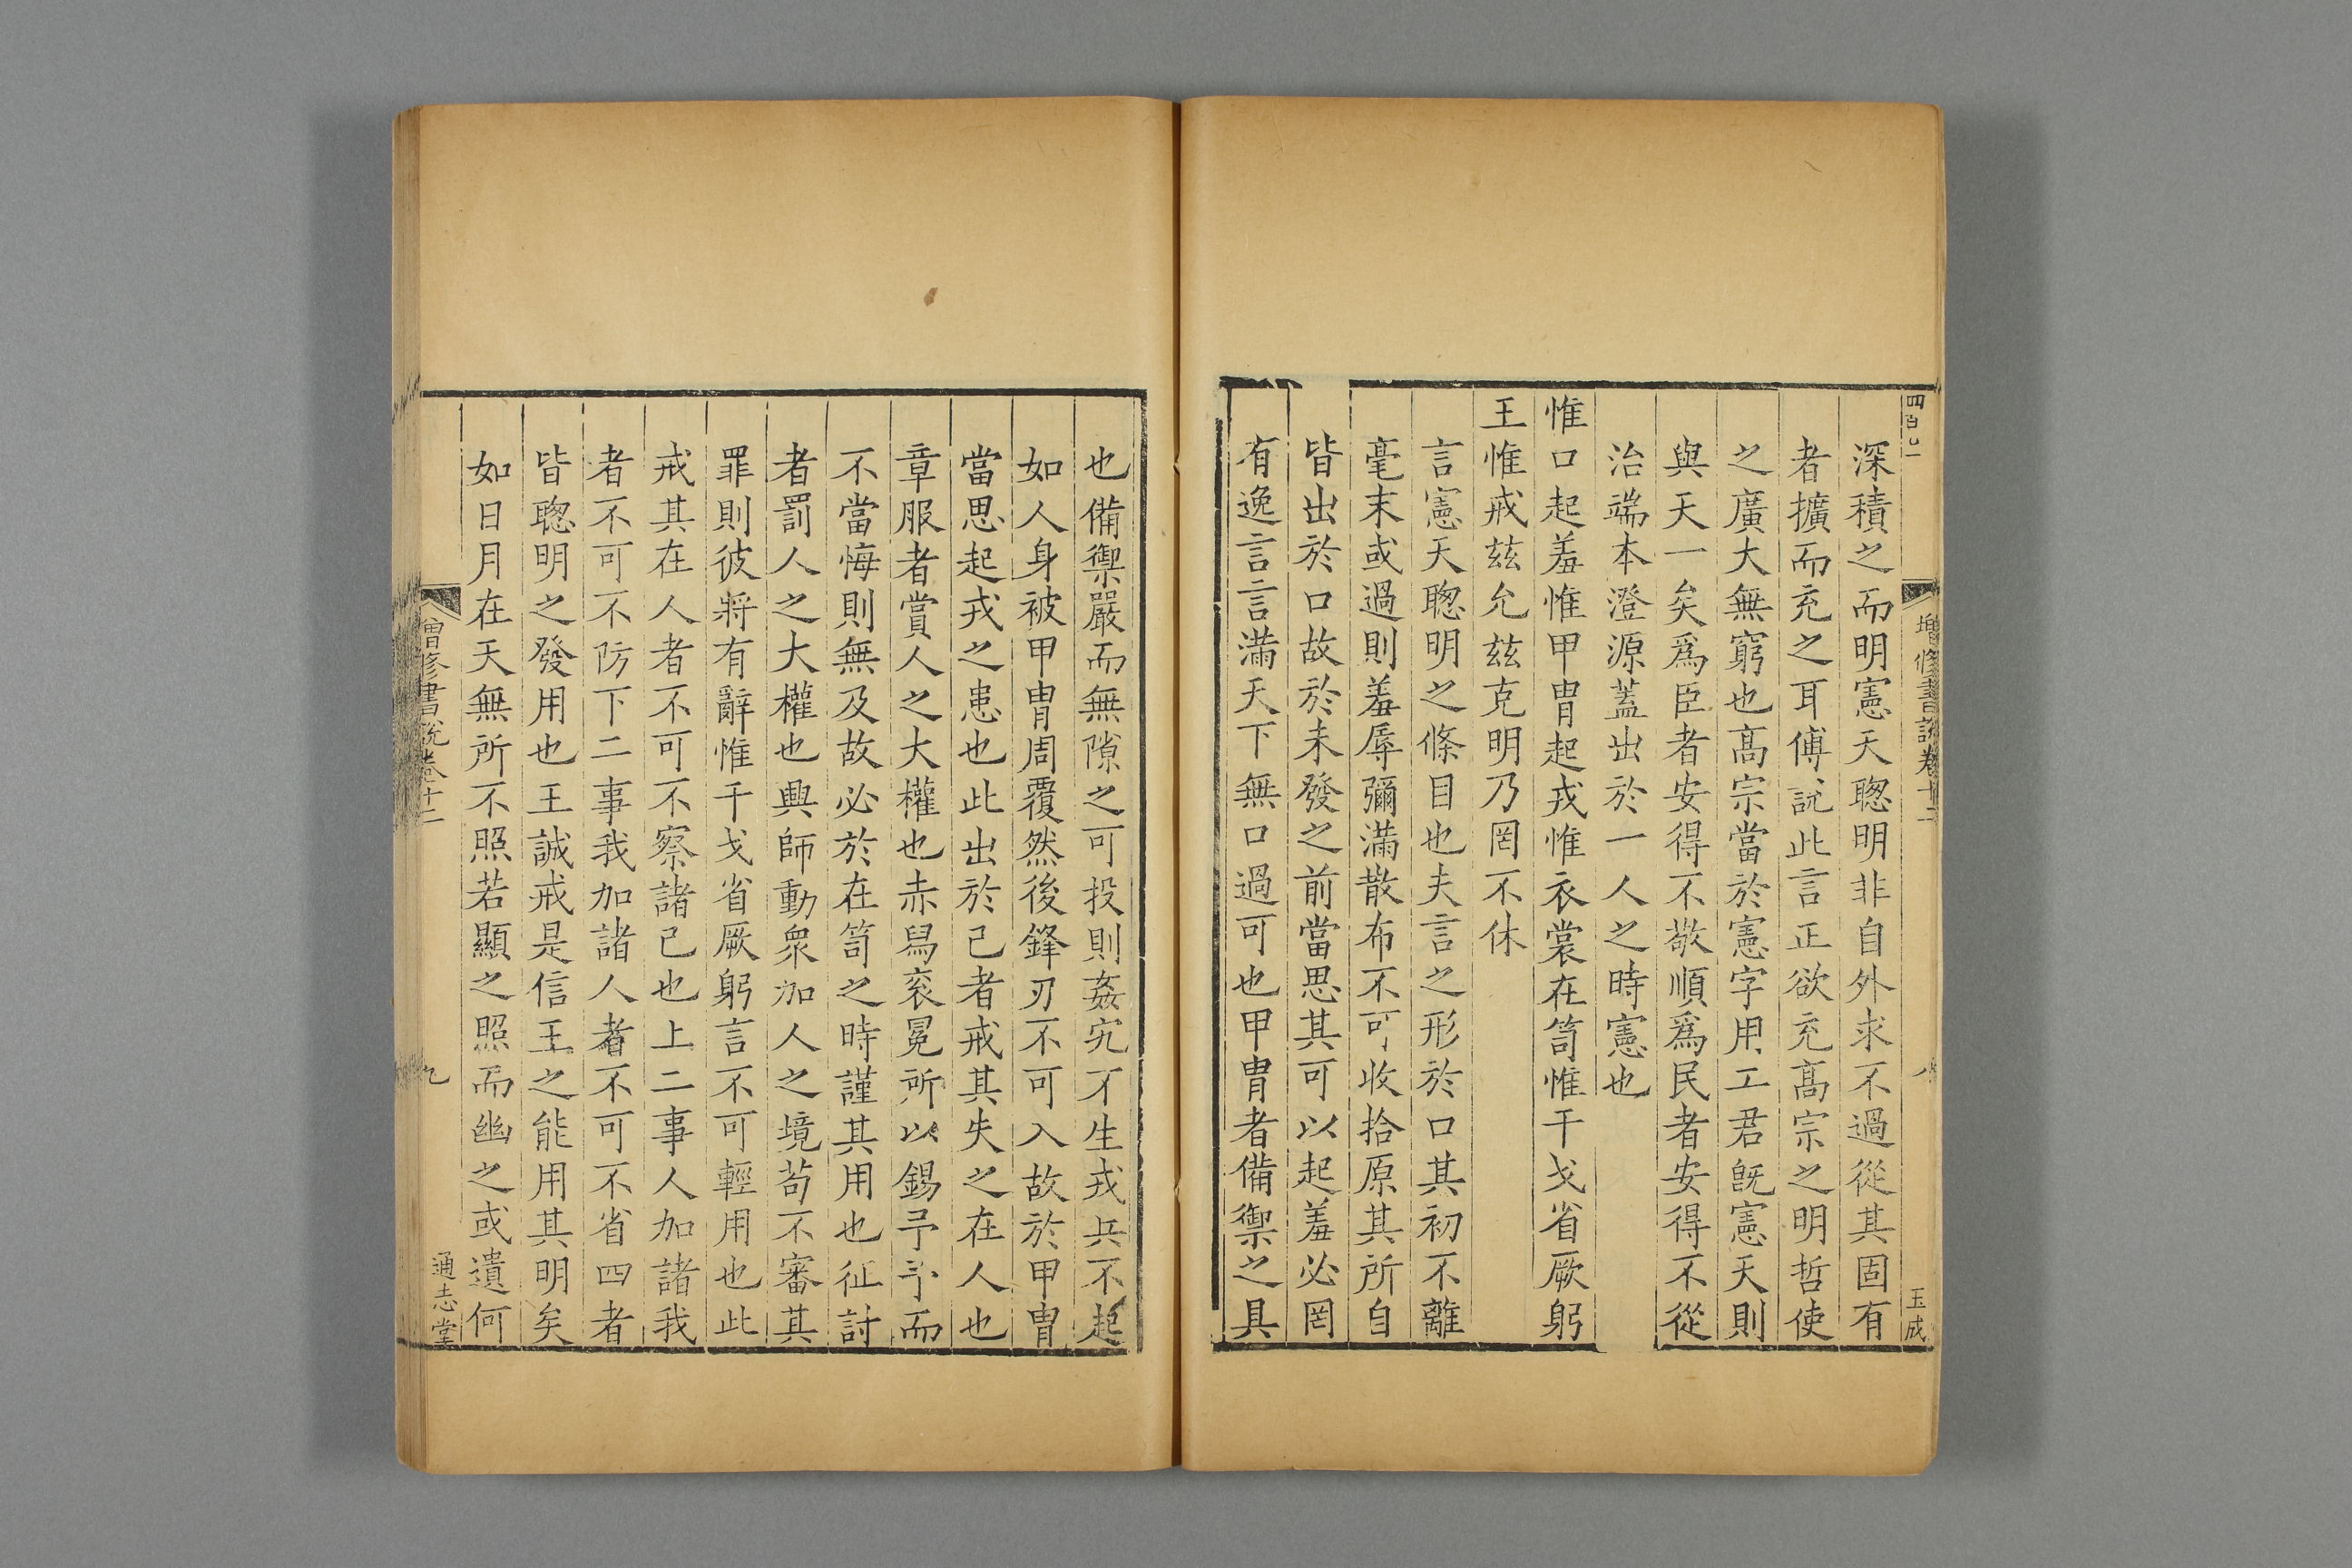 增修書說卷十二
八
玉成
深積之而明憲天聦明非自外求不過從其固有
者擴而充之耳傅說此言正欲充髙宗之明哲使
之廣大無窮也髙宗當於憲字用工君旣憲天則
與天一矣爲臣者安得不敬順爲民者安得不從
治端本澄源蓋出於一人之時憲也
惟口起羞惟甲胄起戎惟衣裳在笥惟干戈省厥躬
王惟戒玆允玆克明乃罔不休
言憲天聦明之條目也夫言之形於口其初不離
毫末或過則羞辱彌滿散布不可收拾原其所自
皆出於口故於未發之前當思其可以起羞必罔
有逸言言滿天下無口過可也甲胄者備禦之具
也備禦嚴而無隙之可投則姦宄不生戎兵不起
如人身被甲胄周覆然後鋒刃不可入故於甲胄
當思起戎之患也此出於己者戒其失之在人也
章服者賞人之大權也赤舄衮冕所以錫予予而
不當悔則無及故必於在笥之時謹其用也征討
者罰人之大權也興師動衆加人之境苟不審其
罪則彼將有辭惟干戈省厥躬言不可輕用也此
戒其在人者不可不察諸己也上二事人加諸我
者不可不防下二事我加諸人者不可不省四者
皆聦明之發用也王誠戒是信王之能用其明矣
如日月在天無所不照若顯之照而幽之或遺何
增修書說卷十二
九
通志堂